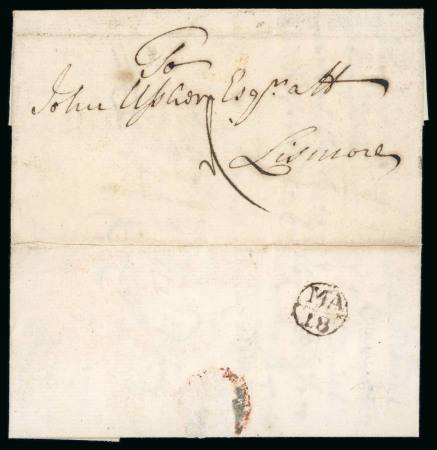 To
John Usher Esqr. att
Lismore
MA
18